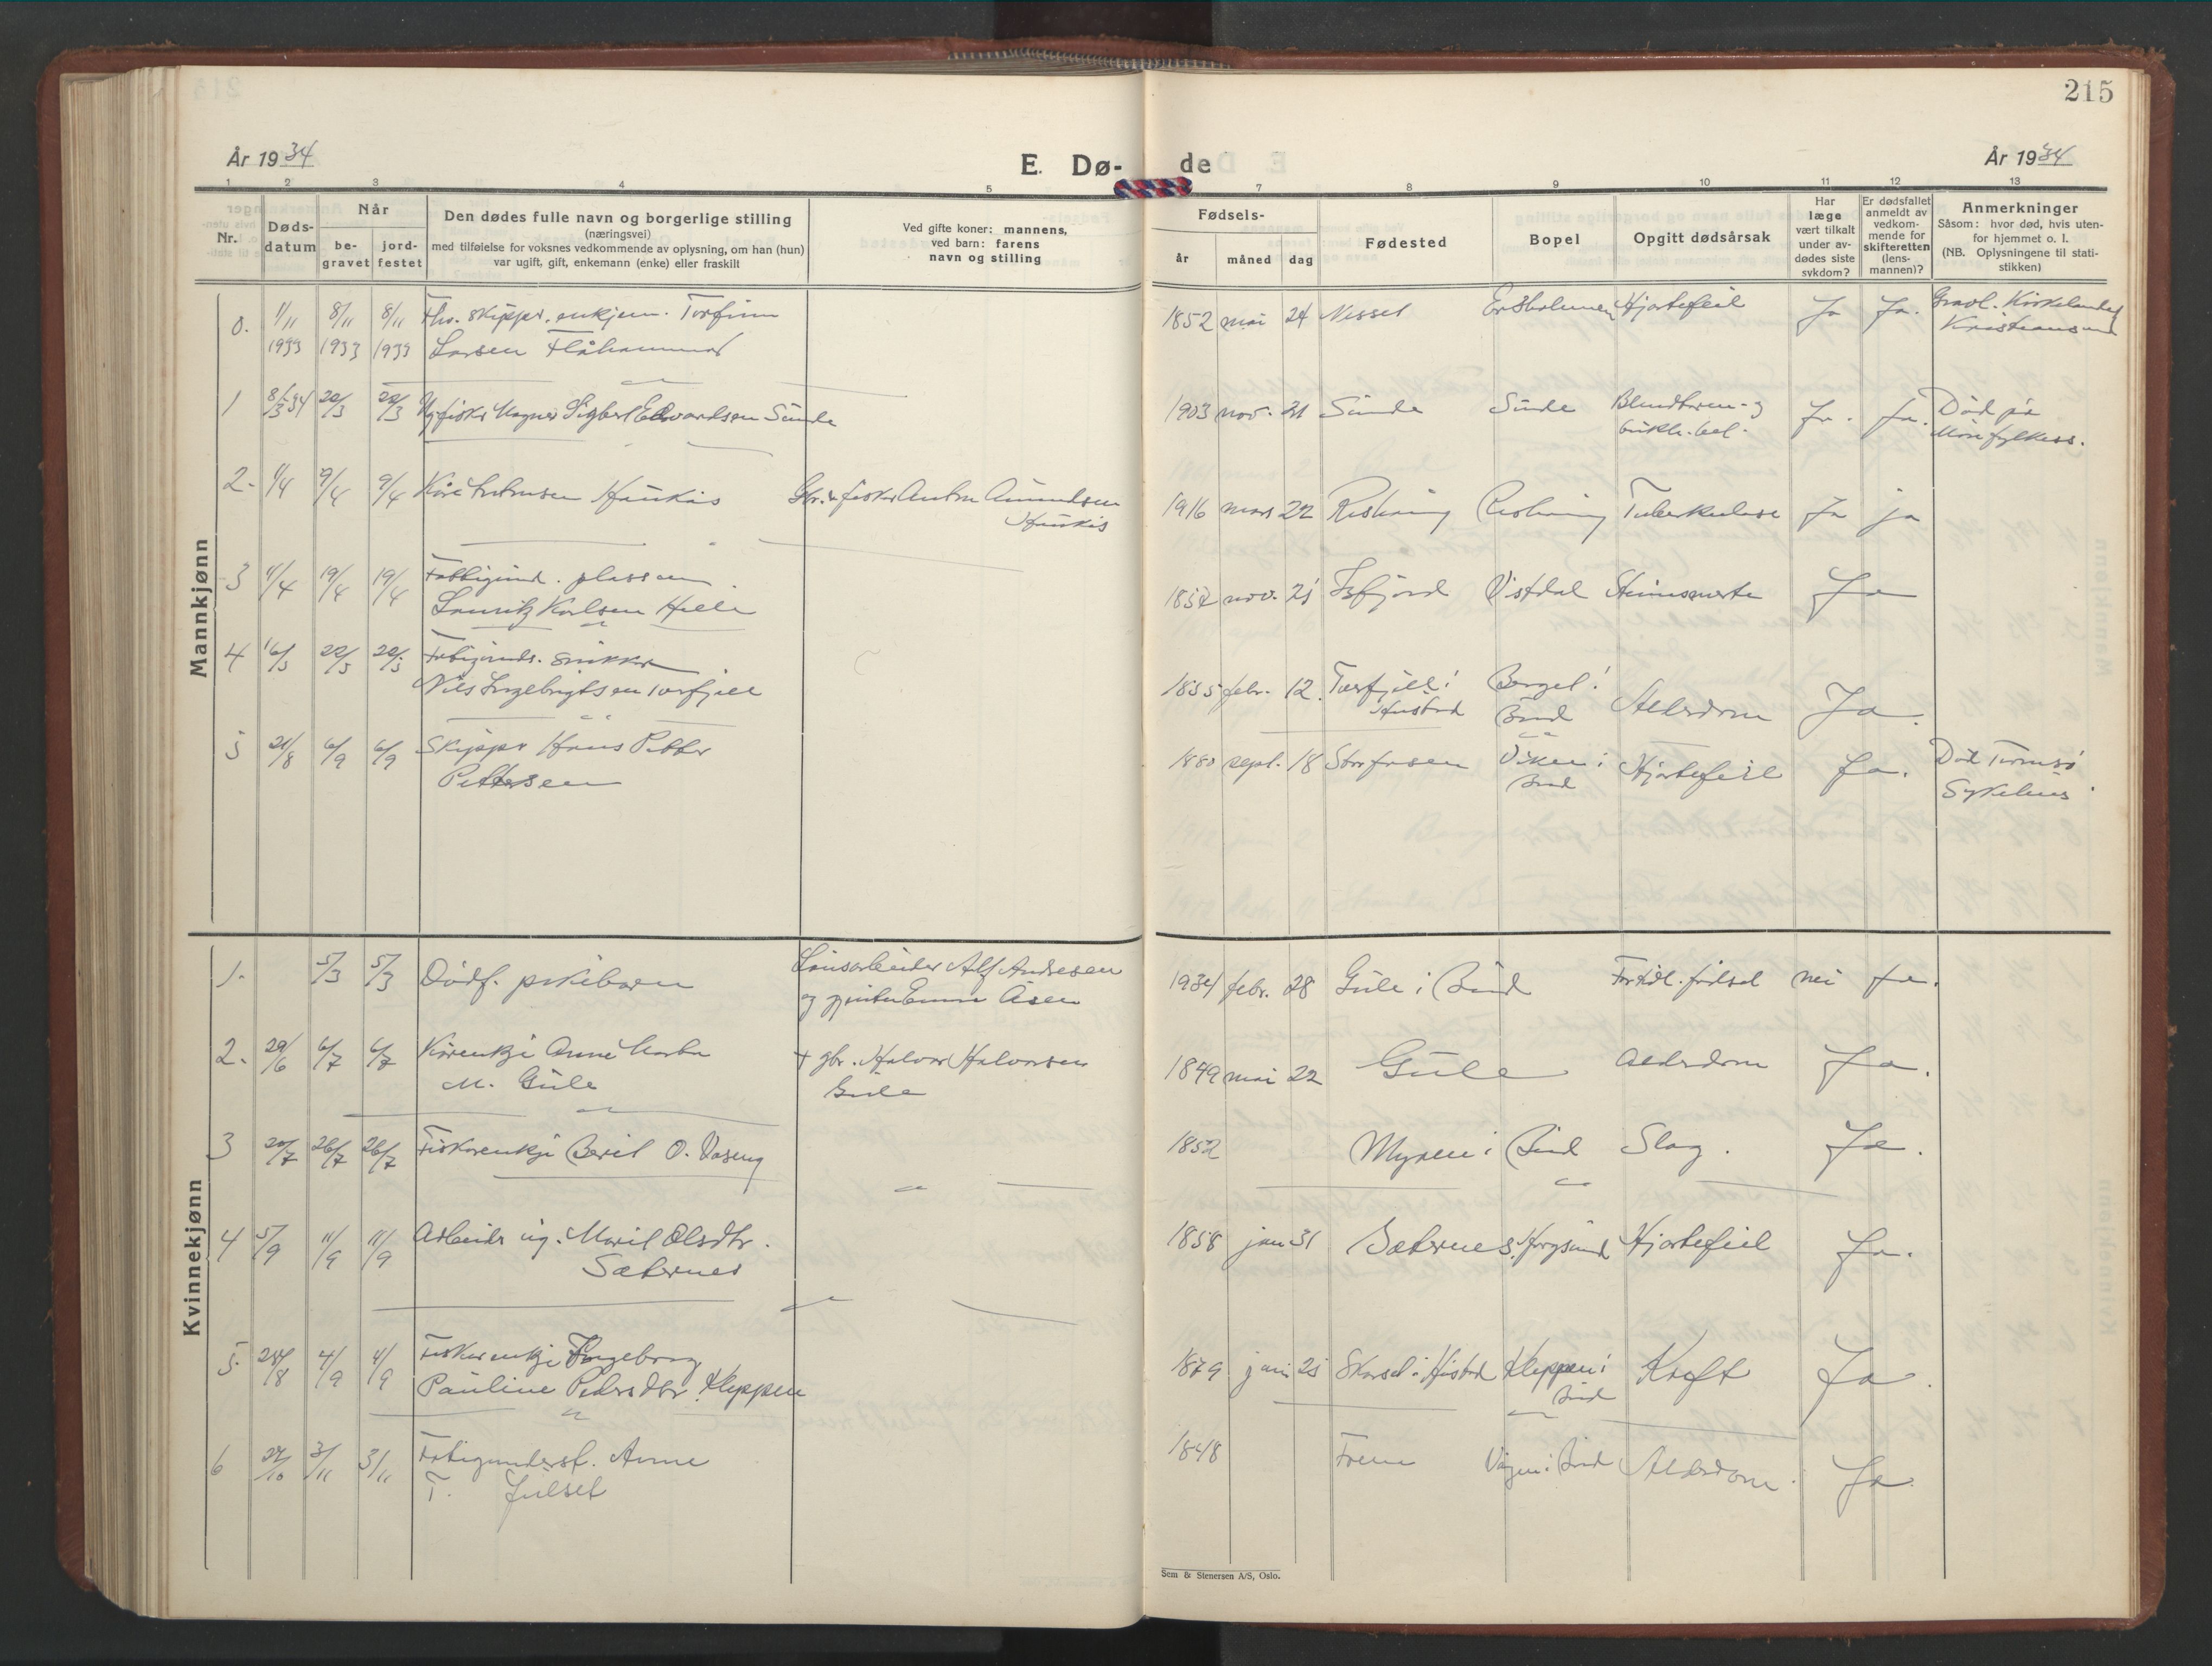 215
År 1934
E. Dø-
de
År 1934
1 2 3 4 5 7 8 9 10 11 12 13
Nr.
Døds-
datum
Når
be-
gravet
jord-
festet
Den dødes fulle navn og borgerlige stilling
(næringsvei)
med tilføielse for voksnes vedkommende av oplysning, om han (hun)
var ugift, gift, enkemann (enke) eller fraskilt
Ved gifte koner: mannens,
ved barn: farens
navn og stilling
Fødsels-
år måned dag
Fødested
Bopel
Opgitt dødsårsak
Har
læge
vært tilkalt
under av-
dødes siste
sykdom?
Er dødsfallet
anmeldt av
vedkom-
mende for
skifteretten
(lens-
mannen)?
Anmerkninger
Såsom: hvor død, hvis uten-
for hjemmet o. l.
(NB. Oplysningene til stati-
stikken)
Mannkjønn
0. 1/11 8/11 8/11 Fhv. skipper, enkjem. Torfinn 1852 mai 24 Nesset Hjertefeil Ja Ja. Gravl. Kirkelandet
1933 1933 1933 Larsen Flåhammer Kristiansund
1 8/3-34 22/3 22/3 fisker Magnus Sigbert Edvardsen Sunde 1903 nov. 21 Sunde Sunde Blindtarm- og Ja. Ja. Død på
bukh. bet. Møre fylkess.
2. 1/4 9/4 9/4 Kåre Antonsen Haukås Gbr. & fisker Anton Amundsen 1916 mars 22 Tuberkulose Ja ja
Haukås
3 11/4 19/4 19/4 Fattigund. plassm.
Lauritz Karlsen Helle nov. 21 Isfjord Vistdal Ja
4 16/5 22/5 22/5 Fatigunds. snikker
Nils Ingebrigtsen Torfjell 1855 febr. 12. Torfjell i Berget i Alderdom Ja.
Hustad Bud
5 21/8 6/9 6/9 Skipper Hans Petter 1880 sept. 18 Viken i Hjertefeil Ja. Død Tromsø
Pettersen Bud Sykehus
Kvinnekjønn
1. 5/3 5/3 Dødf. pikebarn Løisarbeider Alf Andresen 1934 febr. 28 Gule i Bud For tidl. fødsel nei ja.
og Emma Åsen
2. 29/6 6/7 6/7 Kårenkje Anne Marta + gbr. Halvor Halvorsen 1849 mai 22 Gule Alderdom Ja.
M. Gule Gule
3 20/7 26/7 26/7 Fiskerenkje Beret O. Vaseng 1852 Myren i Bud Slag. Ja.
4 5/9 11/9 11/9 Arbeider ug. Marit Olsdtr. 1858 jan 31 Sæternes Hjertefeil Ja.
Sæternes
5. 4/9 4/9 Fiskerenkje Ingeborg 1879 Skarset i Hustad Kleppen i Kreft Ja.
Pauline Pedersdtr. Kleppen Bud
6 27/10 3/11 3/11 Fatigunderst. Anne 1848 Vågen i Bud Alderdom. Ja.
T. Julset
Sem & Stenersen A/S, Oslo.